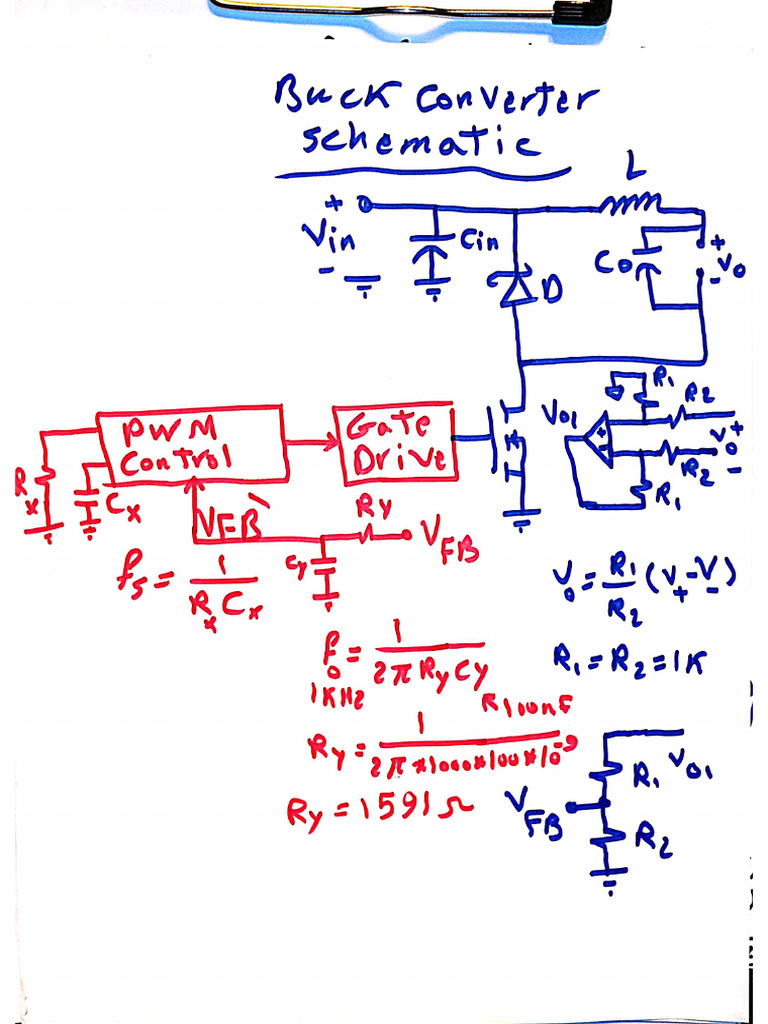 Buck Converter
schematic
L
+
Vin
-
Cin
D
Co
+
Vo
-
R1
R2
Vo1
+
Vo
-
R2
R1
PWM
Control
Gate
Drive
Rx
Cx
VFB`
Ry
VFB
Cy
fs = 1 / RxCx
Vo = R1/R2 (V+ - V-)
fo = 1 / 2π Ry Cy
1KHz
100nF
R1 = R2 = 1K
Ry = 1 / 2π×1000×100×10^-9
Ry = 1591Ω
VFB
R1
Vo1
R2